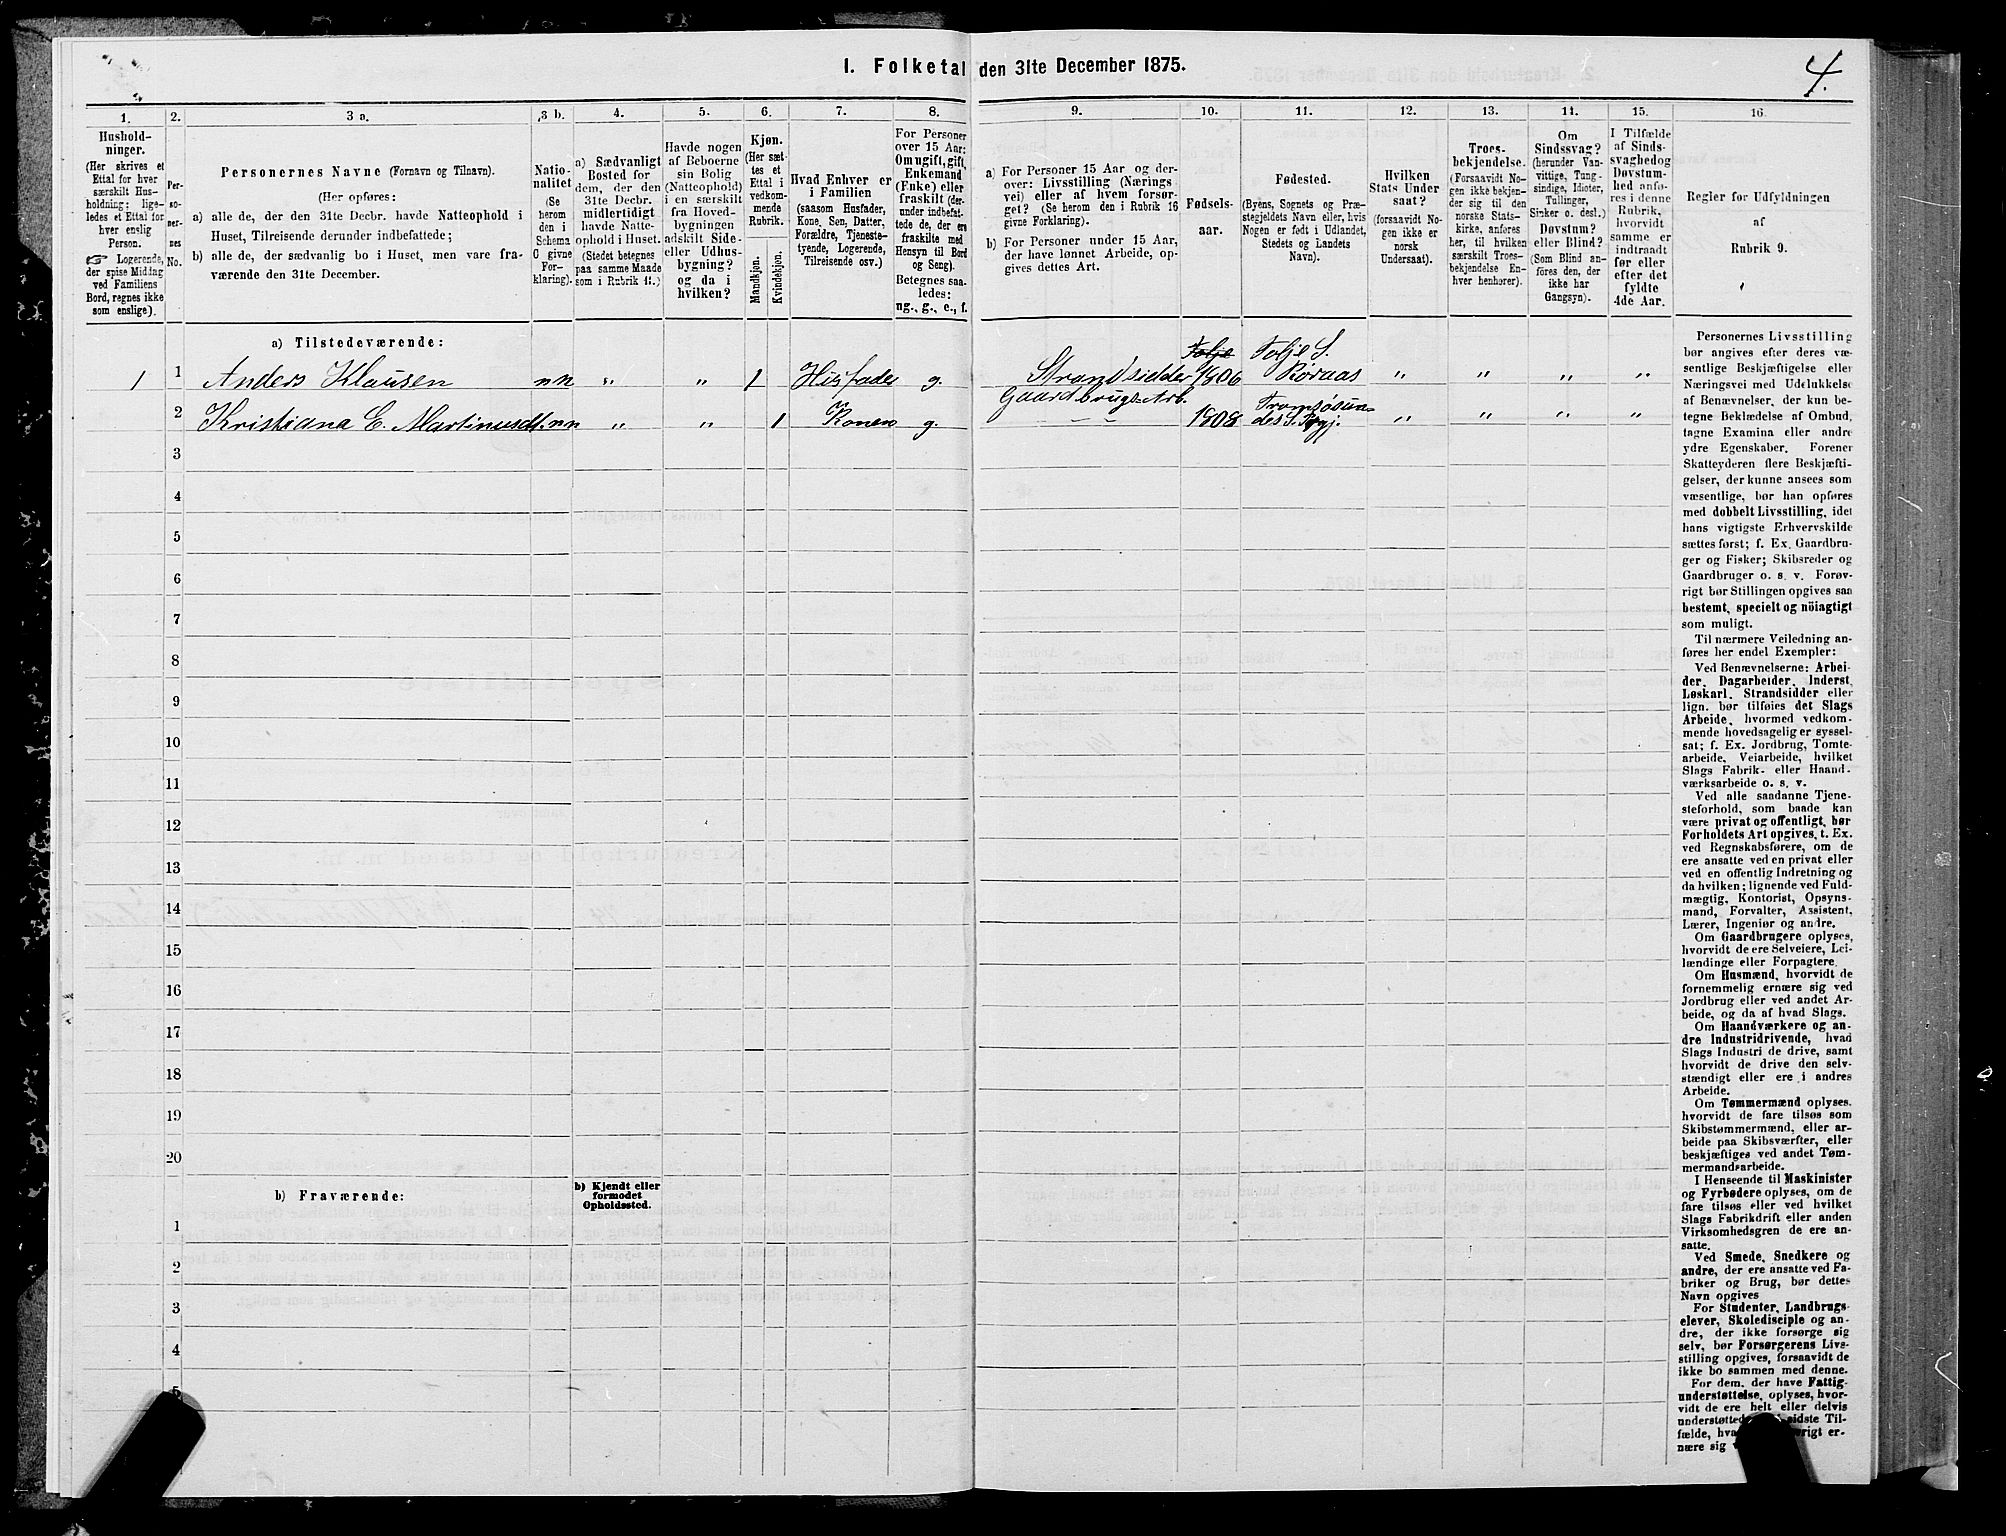 1. Folketal den 31te December 1875.
4.
1.
2.
3 a.
3 b.
4.
5.
6.
7.
8.
9.
10.
11.
12.
13.
14.
15.
16.
Hushold-
ninger.
(Her skrives et
Ettal for hver
særskilt Hus-
holdning; lige-
ledes et Ettal for
hver enslig
Person.
☞ Logerende,
der spise Middag
ved Familiens
Bord, regnes ikke
som enslige).
Per-
so-
ner-
nes
No.
Personernes Navne (Fornavn og Tilnavn).
(Her opføres:
a) alle de, der den 31te Decbr. havde Natteophold i
Huset, Tilreisende derunder indbefattede;
b) alle de, der sædvanlig bo i Huset, men vare fra-
værende den 31te December.
Natio-
nalitet
(Se
herom
den i
Schema
6 givne
For-
klaring).
a) Sædvanligt
Bosted for
dem, der den
31te Decbr.
midlertidigt
havde Natte-
ophold i Huset.
(Stedet betegnes
paa samme Maade
som i Rubrik 11.)
Havde nogen
af Beboerne
sin Bolig
(Natteophold)
i en særskilt
fra Hoved-
bygningen
adskilt Side-
eller Udhus-
bygning?
og da i
hvilken?
Kjøn.
(Her sæt-
tes et
Ettal i
vedkom-
mende
Rubrik.)
Mandkjøn.
Kvindekjøn.
Hvad Enhver er
i Familien
(saasom Husfader,
Kone, Søn, Datter,
Forældre, Tjeneste-
tyende, Logerende,
Tilreisende osv.)
For Personer
over 15 Aar:
Om ugift, gift,
Enkemand
(Enke) eller
fraskilt (der-
under indbefat-
tede de, der ere
fraskilte med
Hensyn til Bord
og Seng).
Betegnes saa-
ledes:
ug., g., e., f.
a) For Personer 15 Aar og der-
over: Livsstilling (Nærings-
vei) eller af hvem forsør-
get? (Se herom den i Rubrik 16
givne Forklaring).
b) For Personer under 15 Aar,
der have lønnet Arbeide, op-
gives dettes Art.
Fødsels-
aar.
Fødested.
(Byens, Sognets og Præ-
stegjeldets Navn eller, hvis
Nogen er født i Udlandet,
Stedets og Landets
Navn).
Hvilken
Stats Under-
saat?
(forsaavidt No-
gen ikke er
norsk
Undersaat).
Troes-
bekjendelse.
(Forsaavidt No-
gen ikke bekjen-
der sig til den
norske Stats-
kirke, anføres
her, til hvilken
særskilt Troes-
bekjendelse En-
hver henhører).
Om
Sindssvag?
(herunder Van-
vittige, Tung-
sindige, Idioter,
Tullinger,
Sinker o. desl.)
Døvstum?
eller Blind?
(Som Blind an-
føres den, der
ikke har
Gangsyn).
I Tilfælde
af Sinds-
svaghed og
Døvstum-
hed anfø-
res i denne
Rubrik,
hvorvidt
samme er
indtraadt
før eller
efter det
fyldte
4de Aar.
Regler for Udfyldningen
af
Rubrik 9.
a) Tilstedeværende:
1 1 Anders Klausen nn „ „ 1 Husfader g. Strandsidder 1806 Røraas „ „ „ „
Tolje Tolje S.
Gaardbrugs.Arb.
2 Kristiana E. Martinusdt. nn „ „ 1 Konen g. — — 1808 Tromsøsun-
des S. Prgj. „ „ „ „
3
4
5
6
7
8
9
10
11
12
13
14
15
16
17
18
19
20
b) Fraværende:
b) Kjendt eller
formodet
Opholdssted.
1
2
3
4
5
Personernes Livsstilling
bør angives efter deres væ-
sentlige Beskjæftigelse eller
Næringsvei med Udelukkelse
af Benævnelser, der kun be-
tegne Beklædelse af Ombud,
tagne Examina eller andre
ydre Egenskaber. Forener
Skatteyderen flere Beskjæfti-
gelser, der kunne ansees som
væsentlige, bør han opføres
med dobbelt Livsstilling, idet
hans vigtigste Erhvervskilde
sættes først; f. Ex. Gaardbru-
ger og Fisker; Skibsreder og
Gaardbruger o. s. v. Forøv-
rigt bør Stillingen opgives saa
bestemt, specielt og nöiagtigt
som muligt.
Til nærmere Veiledning an-
føres her endel Exempler:
Ved Benævnelserne: Arbei-
der, Dagarbeider, Inderst,
Løskarl, Strandsidder eller
lign. bør tilføies det Slags
Arbeide, hvormed vedkom-
mende hovedsagelig er syssel-
sat; f. Ex. Jordbrug, Tomte-
arbeide, Veiarbeide, hvilket
Slags Fabrik- eller Haand-
værksarbeide o. s. v.
Ved alle saadanne Tjene-
steforhold, som baade kan
være privat og offentligt, bør
Forholdets Art opgives, t. Ex.
ved Regnskabsførere, om de
ere ansatte ved en privat eller
ved en offentlig Indretning og
da hvilken; lignende ved Fuld-
mægtig, Kontorist, Opsyns-
mand, Forvalter, Assistent,
Lærer, Ingeniør og andre.
Om Gaardbrugere oplyses,
hvorvidt de ere Selveiere, Lei-
lændinge eller Forpagtere.
Om Husmænd, hvorvidt de
fornemmelig ernære sig ved
Jordbrug eller ved andet Ar-
beide, og da af hvad Slags.
Om Haandværkere og an-
dre Industridrivende, hvad
Slags Industri de drive, samt
hvorvidt de drive den selv-
stændigt eller ere i andres
Arbeide.
Om Tømmermænd oplyses,
hvorvidt de fare tilsøs som
Skibstømmermænd, eller ar-
beide paa Skibsværfter, eller
beskjæftiges ved andet Tøm-
mermandsarbeide.
I Henseende til Maskinister
og Fyrbødere oplyses, om de
fare tilsøs eller ved hvilket
Slags Fabrikdrift eller anden
Virksomhedsgren de ere an-
satte.
Ved Smede, Snedkere og
andre, der ere ansatte ved Fa-
briker og Brug, bør dettes
Navn opgives
For Studenter, Landbrugs-
elever, Skoledisciple og an-
dre, der ikke forsørge sig
selv, bør Forsørgerens Livs-
stilling opgives, forsaavidt de
ikke bo sammen med denne.
For dem, der have Fattig-
understøttelse, oplyses, hvor-
vidt de ere helt eller delvis
understøttede sidste Til-
fælde, hva rigt er-
nære sig